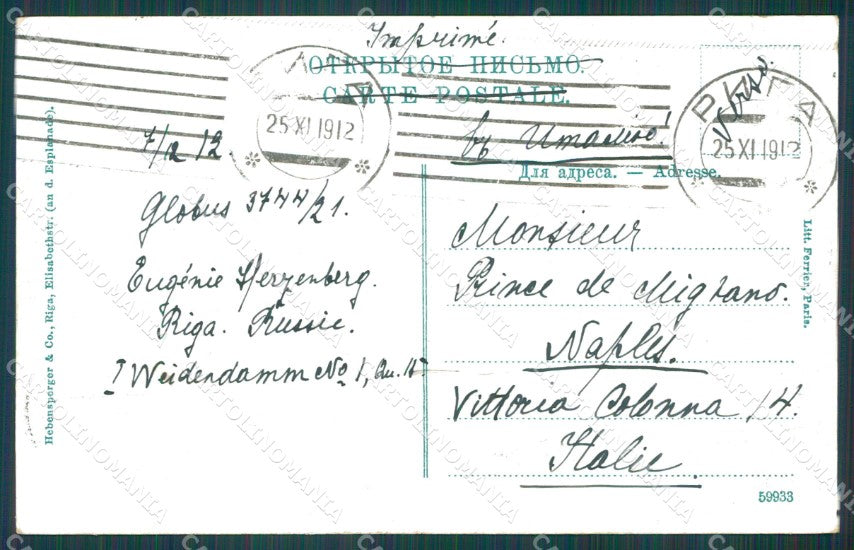 Imprimé.
ОТКРЫТОЕ ПИСЬМО.
CARTE POSTALE.
РИГА
25 XI 1912
Verso.
РИГА
25 XI 1912
въ Италію!
Для адреса. — Adresse.
7/12 12.
Globus 3744/21.
Eugénie Herzenberg.
Riga. Russie.
I Weidendamm No 1, Qu.
Monsieur
Prince de Migrano.
Naples.
Vittoria Colonna 14.
Italie.
Hebensperger & Co., Riga, Elisabethstr. (an d. Esplanade).
Litt. Ferrier, Paris.
59933
CARTOLINOMANIA